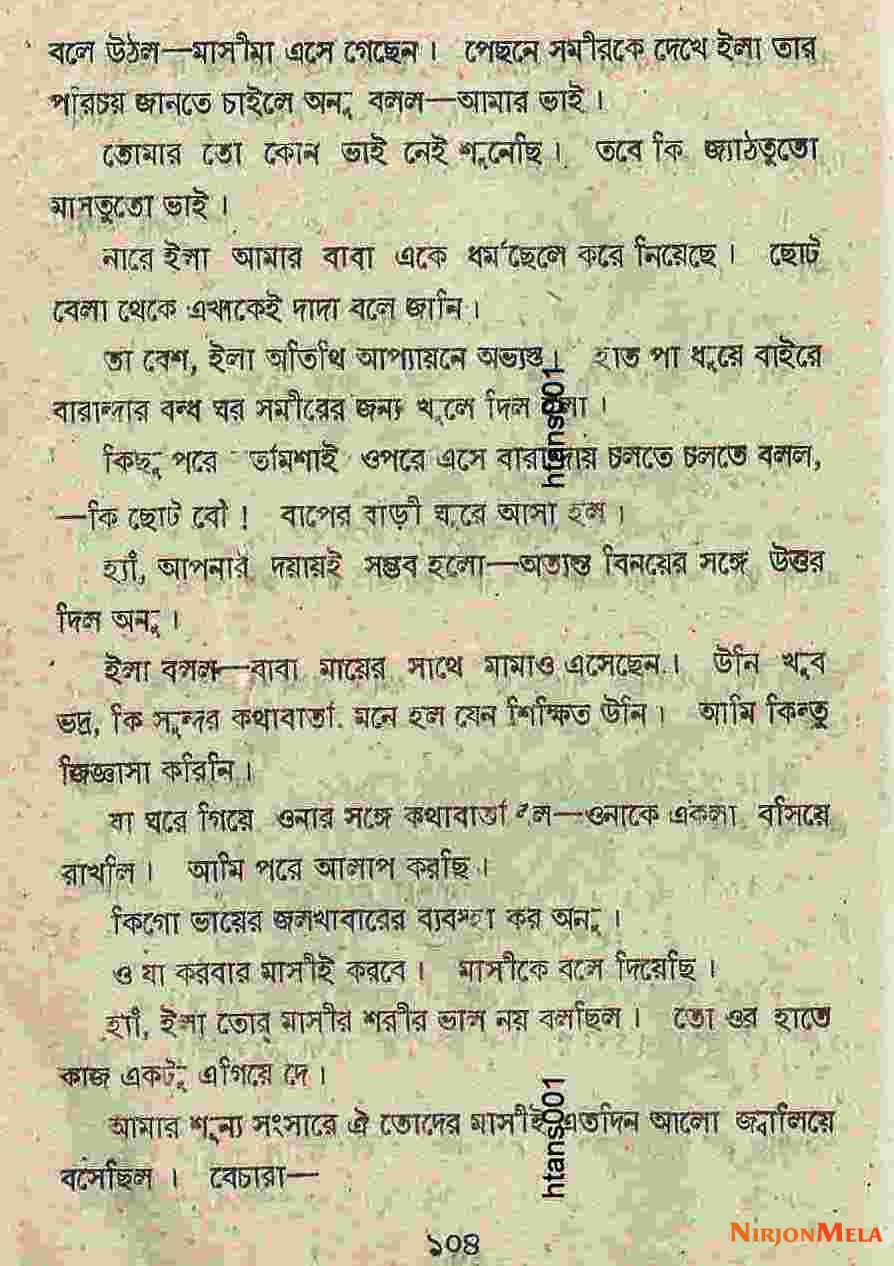 বলে উঠল—মাসীমা এসে গেছেন। পেছনে সমীরকে দেখে ইলা তার
পরিচয় জানতে চাইলে অনু বলল—আমার ভাই।
তোমার তো কোন ভাই নেই শুনেছি। তবে কি জ্যাঠতুতো
মাসতুতো ভাই।
নারে ইলা আমার বাবা একে ধর্মছেলে করে নিয়েছে। ছোট
বেলা থেকে একেই দাদা বলে জানি।
তা বেশ, ইলা অতিথি আপ্যায়নে অভ্যস্ত। হাত পা ধুয়ে বাইরে
বারান্দার বন্ধ ঘর সমীরের জন্য খুলে দিল
কিছু পরে ওপরে এসে বারান্দায় চলতে চলতে বলল,
—কি ছোট বৌ! বাপের বাড়ী ঘুরে আসা হল।
হ্যাঁ, আপনার দয়ায়ই সম্ভব হলো—অত্যন্ত বিনয়ের সঙ্গে উত্তর
দিল অনু।
ইলা বলল—বাবা মায়ের সাথে মামাও এসেছেন। উনি খুব
ভদ্র, কি সুন্দর কথাবার্তা. মনে হল যেন শিক্ষিত উনি। আমি কিন্তু
জিজ্ঞাসা করিনি।
যা ঘরে গিয়ে ওনার সঙ্গে কথাবার্তা বল—ওনাকে একলা বসিয়ে
রাখলি। আমি পরে আলাপ করছি।
কিগো ভায়ের জলখাবারের ব্যবস্থা কর অনু।
ও যা করবার মাসীই করবে। মাসীকে বলে দিয়েছি।
হ্যাঁ, ইলা তোর মাসীর শরীর ভাল নয় বলছিল। তো ওর হাতে
কাজ একটু এগিয়ে দে।
আমার শূন্য সংসারে ঐ তোদের মাসীই এতদিন আলো জ্বালিয়ে
বসেছিল। বেচারা—
১০৪
htans001
htans001
NIRJONMELA